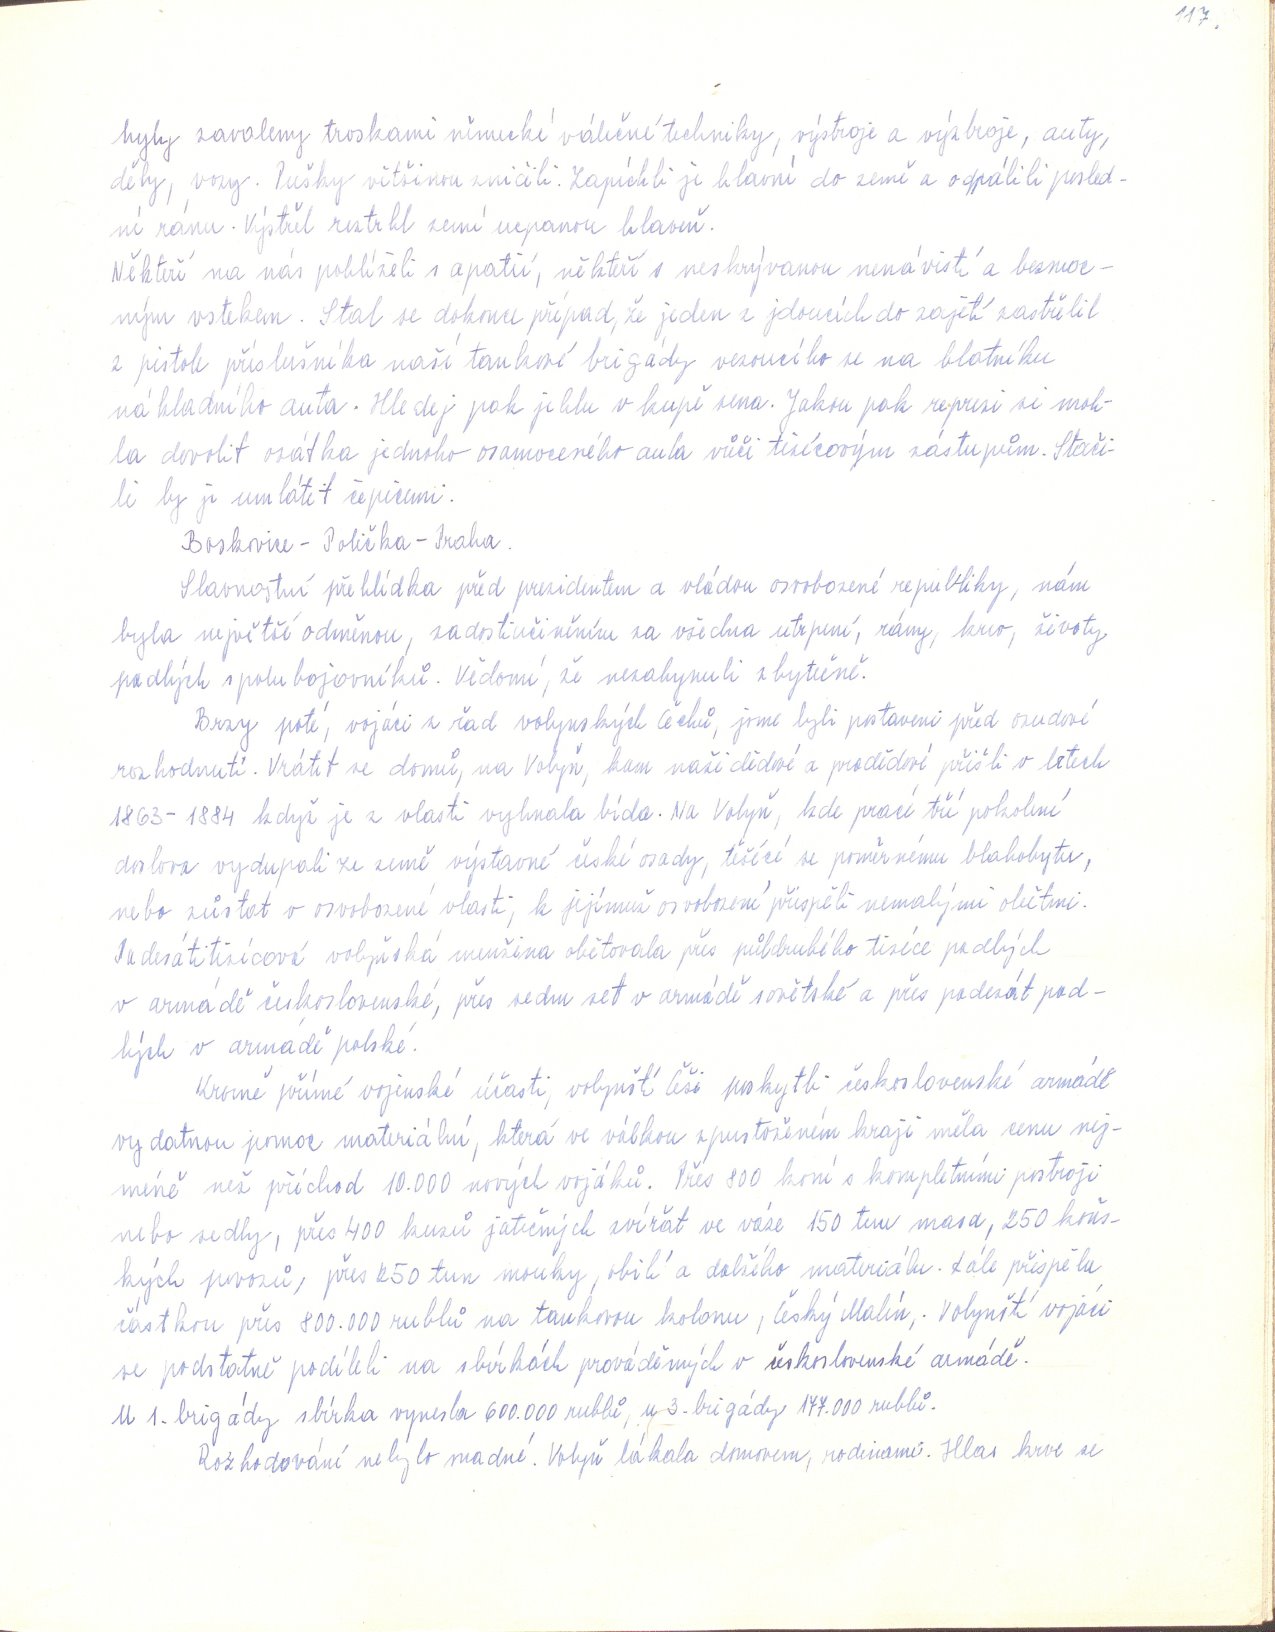 117.
byly zavaleny troskami německé válečné techniky, výstroje a výzbroje, auty,
děly, vozy. Pušky většinou zničili. Zapíchli je hlavní do země a odpálili posled-
ní ránu. Výstřel roztrhl zemí ucpanou hlaveň.
Někteří na nás pohlíželi s apatií, někteří s neskrývanou nenávistí a bezmoc-
ným vztekem. Stal se dokonce případ, že jeden z jdoucích do zajetí zastřelil
z pistole příslušníka naší tankové brigády vezoucího se na blatníku
nákladního auta. Hledej pak jehlu v kupě sena. Jakou pak represi si moh-
la dovolit osátka jednoho osamoceného auta vůči tisícovým zástupům. Stači-
li by je umlátit čepicemi.
Boskovice - Polička - Praha.
Slavnostní přehlídka před prezidentem a vládou osvobozené republiky, nám
byla největší odměnou, zadostiučiněním za všechna utrpení, rány, krev, životy
padlých spolubojovníků. Vědomí, že nezahynuli zbytečně.
Brzy poté, vojáci z řad volynských Čechů, jsme byli postaveni před osudové
rozhodnutí. Vrátit se domů, na Volyň, kam naši dědové a pradědové přišli v letech
1863 - 1884 když je z vlasti vyhnala bída. Na Volyň, kde prací tří pokolení
doslova vydupali ze země výstavné české osady, těšící se poměrnému blahobytu,
nebo zůstat v osvobozené vlasti, k jejímuž osvobození přispěli nemalými oběťmi.
Padesátitisícová volyňská menšina obětovala přes půldruhého tisíce padlých
v armádě československé, přes sedm set v armádě sovětské a přes padesát pad-
lých v armádě polské.
Kromě přímé vojenské účasti, volynští Češi poskytli československé armádě
vydatnou pomoc materiální, která ve válkou zpustošeném kraji měla cenu nej-
méně než příchod 10.000 nových vojáků. Přes 800 koní s kompletními postroji
nebo sedly, přes 400 kusů jatečných zvířat ve váze 150 tun masa, 250 koňs-
kých povozů, přes 250 tun mouky, obilí a dalšího materiálu. Dále přispěla
částkou přes 800.000 rublů na tankovou kolonu, Český Malín,. Volynští vojáci
se podstatně podíleli na sbírkách prováděných v československé armádě.
U 1. brigády sbírka vynesla 600.000 rublů, u 3. brigády 177.000 rublů.
Rozhodování nebylo snadné. Volyň lákala domovem, rodinami. Hlas krve se